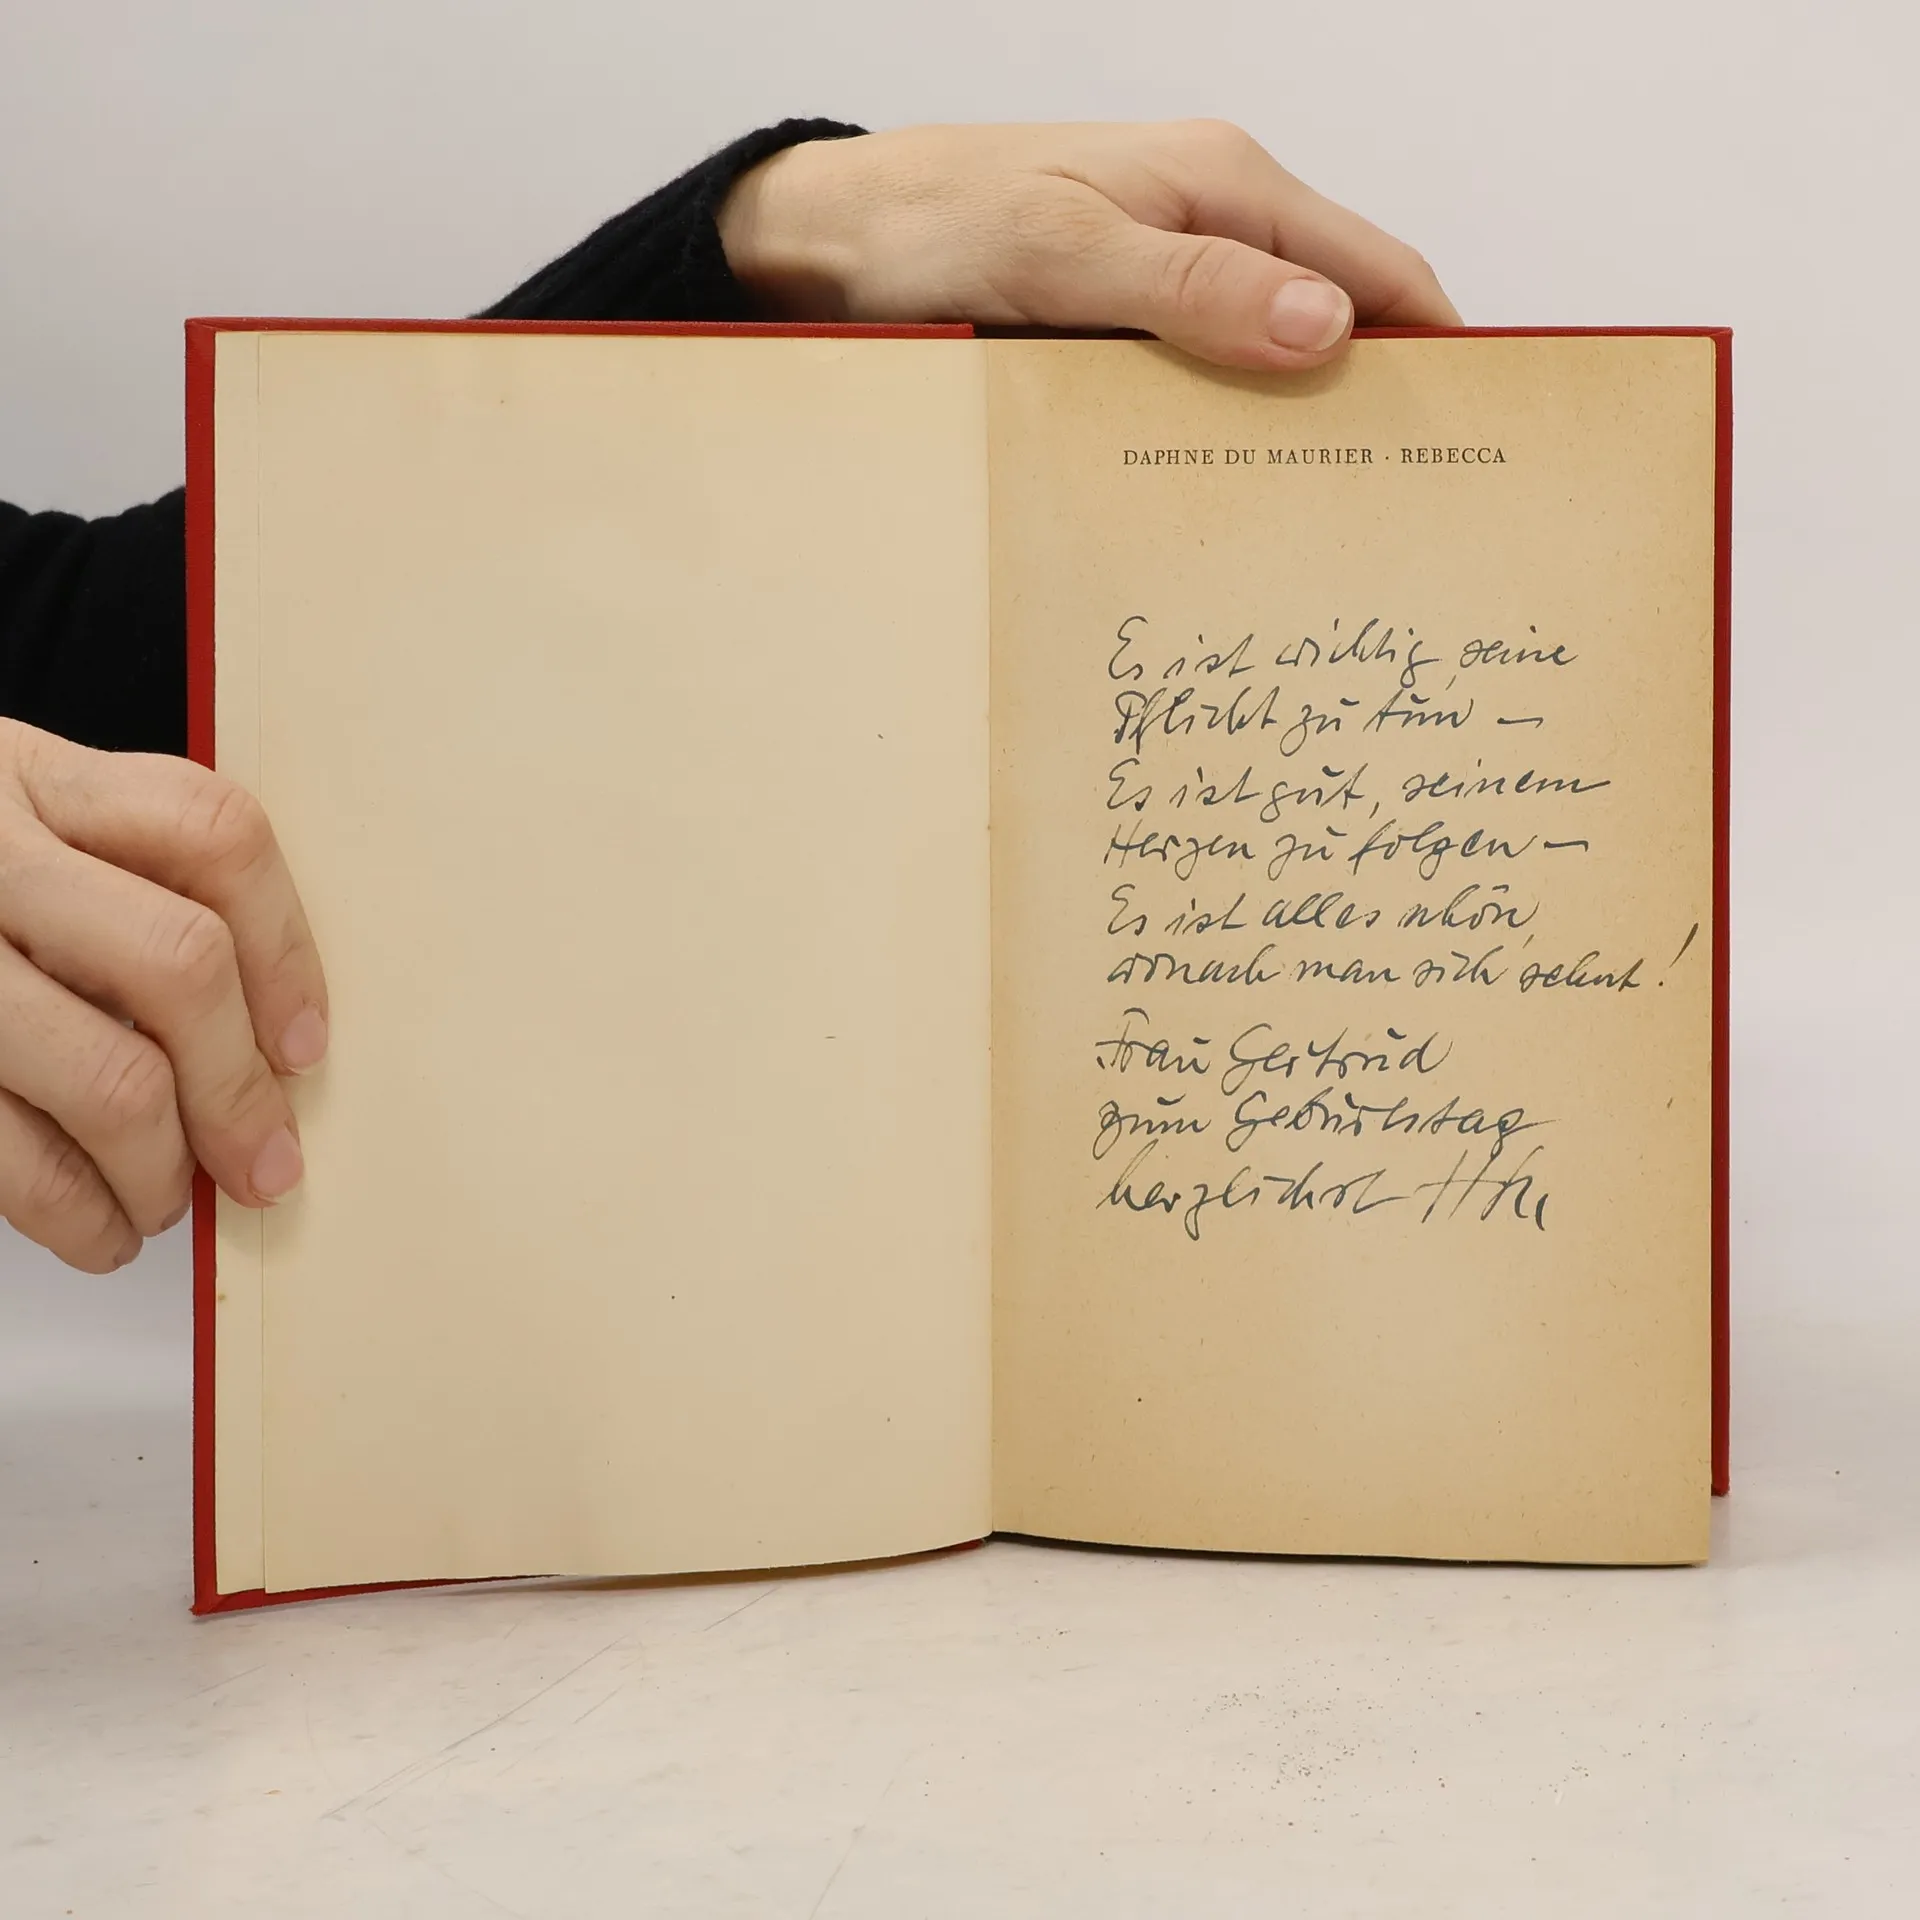 DAPHNE DU MAURIER · REBECCA
Es ist wichtig, seine
Pflicht zu tun —
Es ist gut, seinem
Herzen zu folgen —
Es ist alles schön,
wonach man sich sehnt!
Frau Gertrud
zum Geburtstag
herzlichst